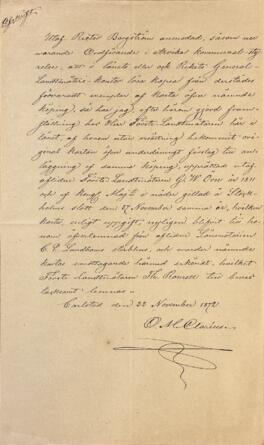 Afskrift.
Utaf Rektor Bergström anmodad, såsom nu
varande Ordförande i Arvika kommunal sty-
relse, att i länets eller och Rikets General
Landtmäteri-kontor låta kopia från derstädes
förvaradt exemplar af karta öfver nämnde
köping, så har jag, efter
hos Herr Förste Landtmätaren här i
länet, af honom
karta öfver underdånigt förslag till an-
läggning af samma köping, upprättad utaf
aflidne Förste Landtmätaren G. W. i 1811
och af Kongl Majt i nåder gillad å Stock-
holms slott den 27 November samma år, hvilken
karta, enligt uppgift, nyligen blifvit till ho-
nom öfverlemnad från aflidne Länsmannen
C. P. Lundboms sterbhus, och varder nämnde
kartas emottagande härmed erkändt, hvilket
Förste landtmätaren Th. Ramsell till bevis
tacksamt lemnas.
Carlstad den 22 November 1872
O. M. Clarin